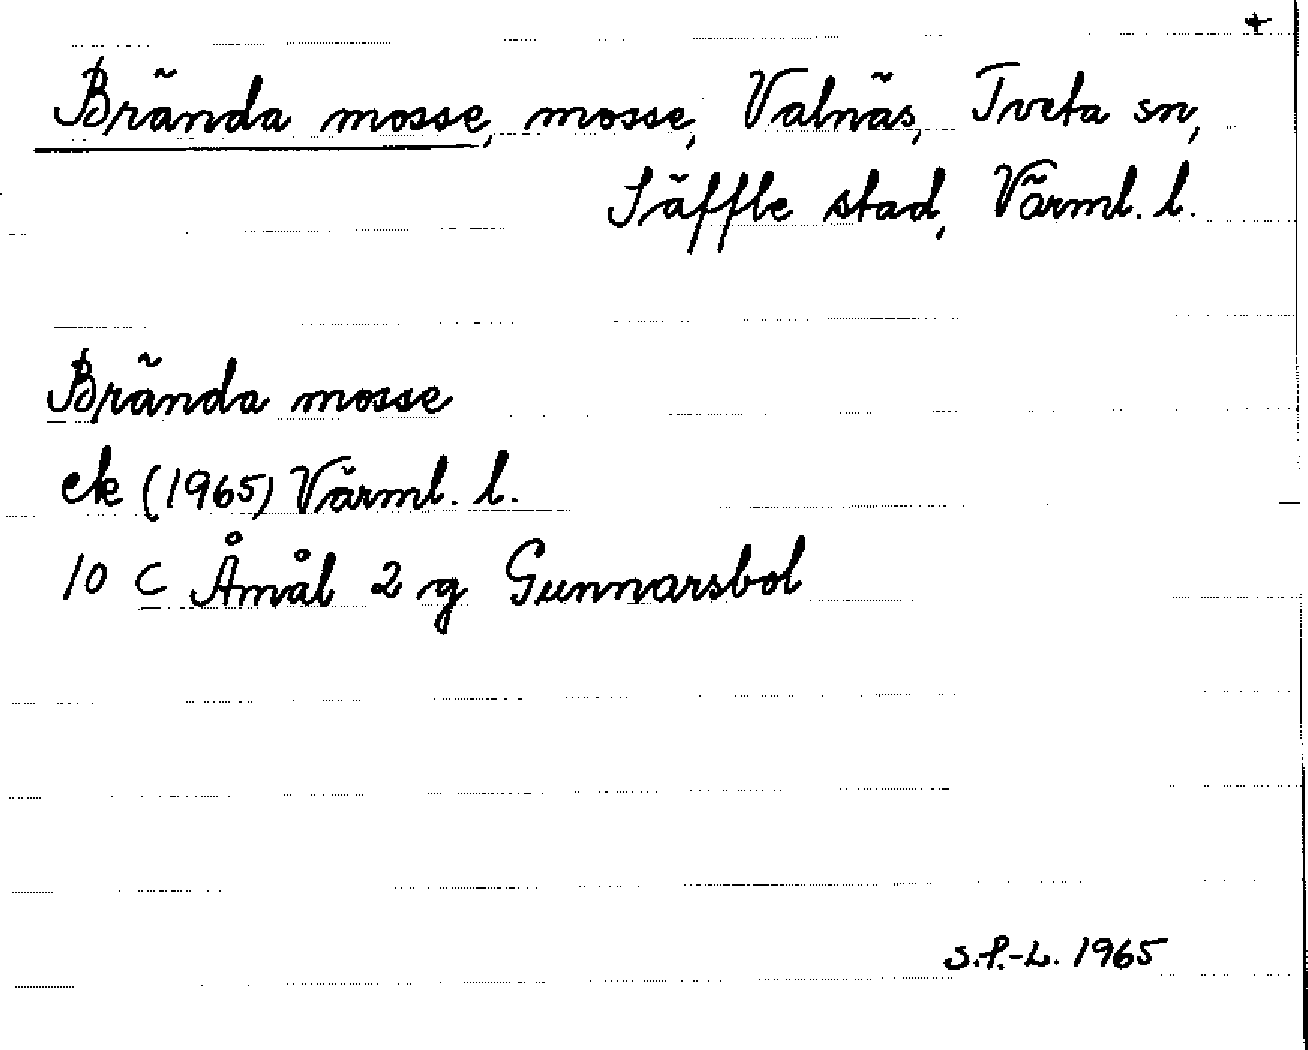 +
Brända mosse, mosse, Valnäs, Tveta sn,
Säffle stad, Värml. l.
Brända mosse
ek (1965) Värml. l.
10 C Åmål 2 g Gunnarsbol
S.P.-L. 1965